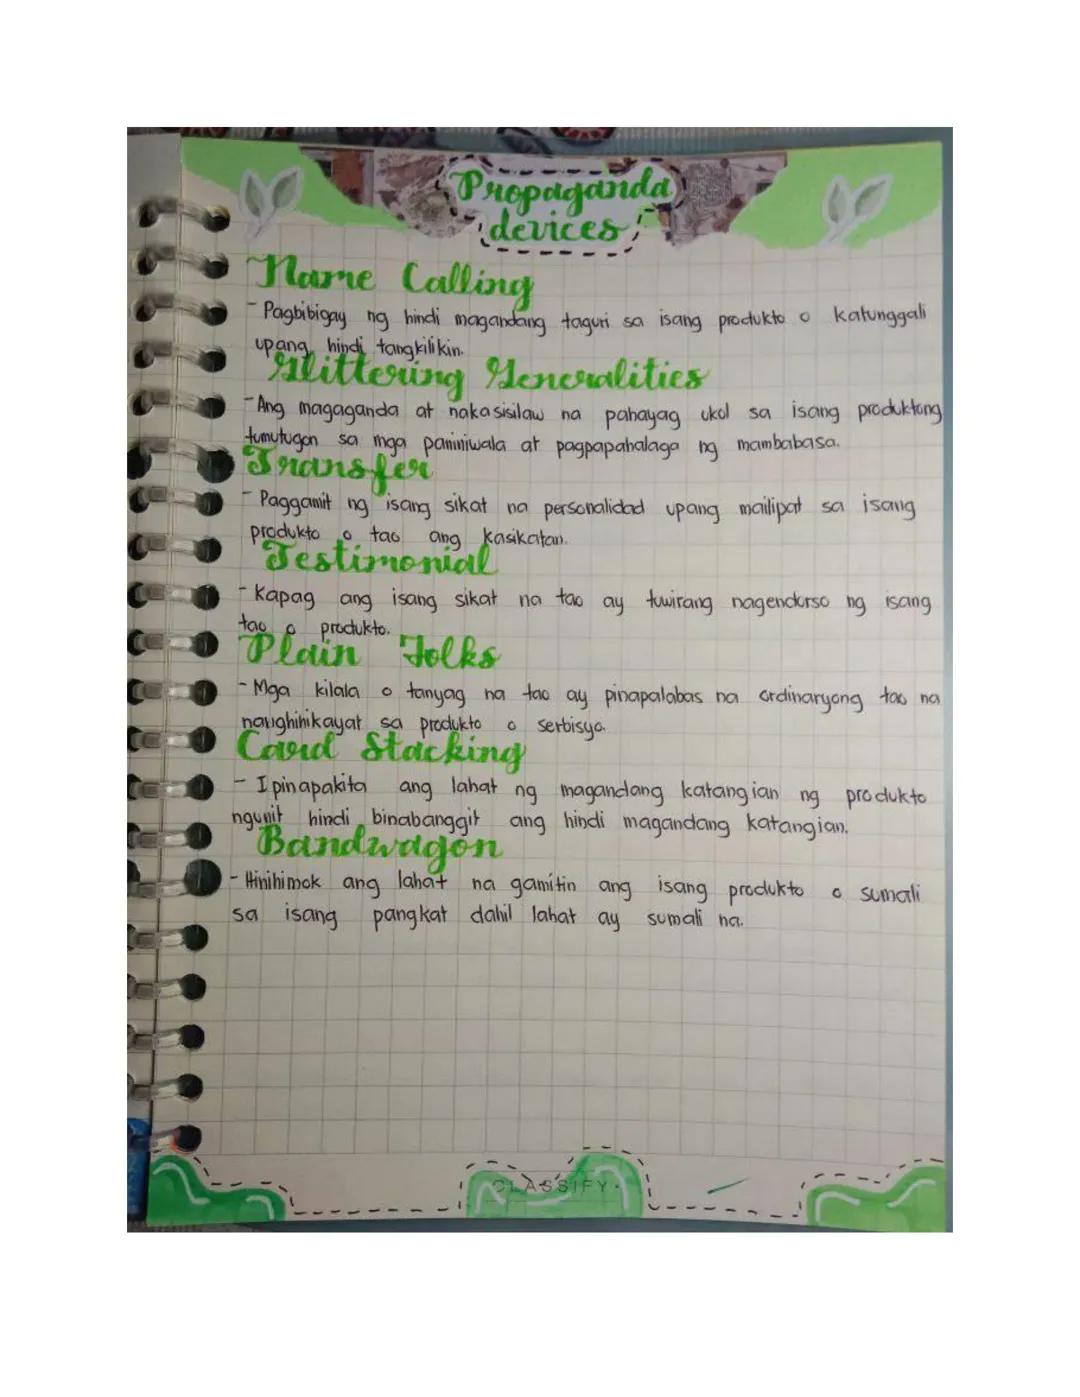 Propaganda
devices
Name Calling
- Pagbibigay ng hindi magandang taguri sa isang produkto o katunggali
upang hindi tangkilikin.
Glittering Generalities
- Ang magaganda at nakasisilaw na pahayag ukol sa isang produktong
tumutugon sa mga paniniwala at pagpapahalaga ng mambabasa.
Transfer
- Paggamit ng isang sikat na personalidad upang mailipat sa isang
produkto o tao ang kasikatan.
Testimonial
- Kapag ang isang sikat na tao ay tuwirang nagendorso ng isang
tao o produkto.
Plain Folks
- Mga kilala o tanyag na tao ay pinapalabas na ordinaryong tao na
nanghihikayat sa produkto o serbisyo.
Card Stacking
- Ipinapakita ang lahat ng magandang katangian ng produkto
ngunit hindi binabanggit ang hindi magandang katangian.
Bandwagon
- Hinihimok ang lahat na gamitin ang isang produkto o sumali
sa isang pangkat dahil lahat ay sumali na.
CLASSIFY